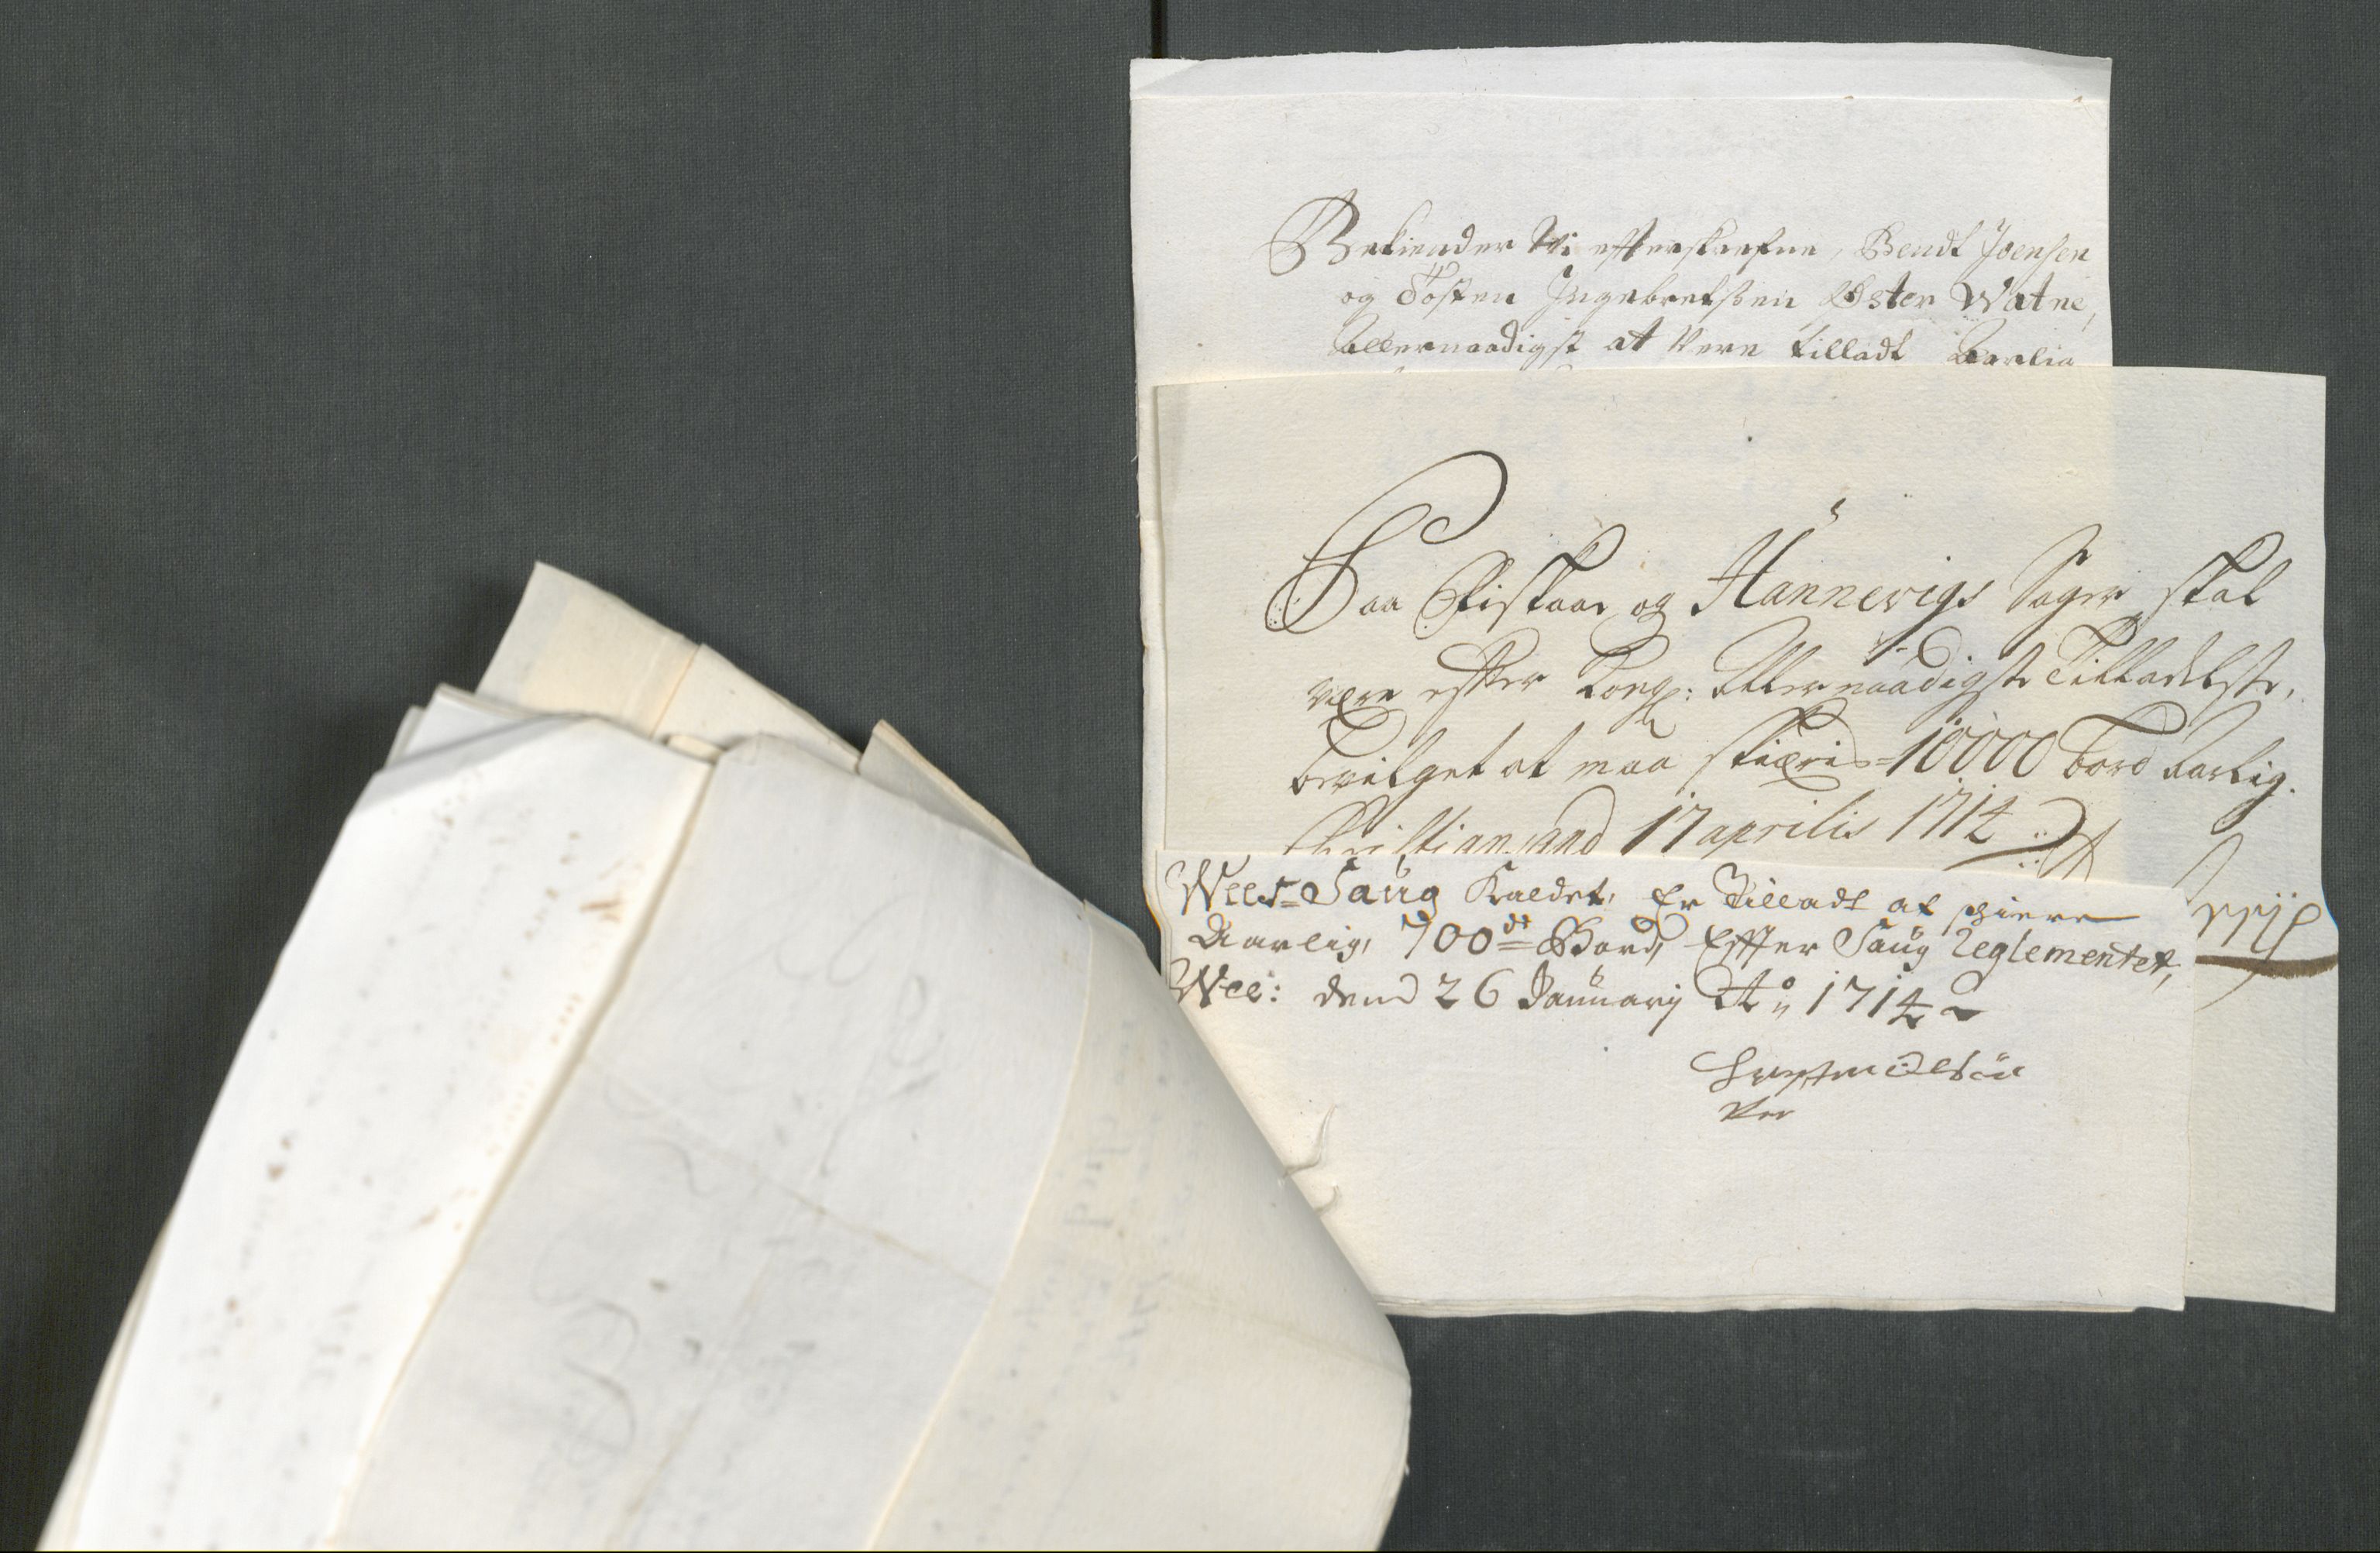 Bekiender Wi efterskrefne, Bendt Joensen
og Tosten Ingebretsen Øster Watne,
Allernaadigst at Vere tilladt Aarlig
Paa Fiskaae og Hannevigs Sager skal
være efter Kongl: Allernaadigste Tilladelse,
bevilget at maa skiæris 10000 bord Aarlig.
Christiansand 17 aprilis 1714
Wees Saug Kaldet, Er Tilladt at schiere
Aarlig, 700de Bord, Effter Saug Reglementet,
Wee: dend 26 January Ao 1714